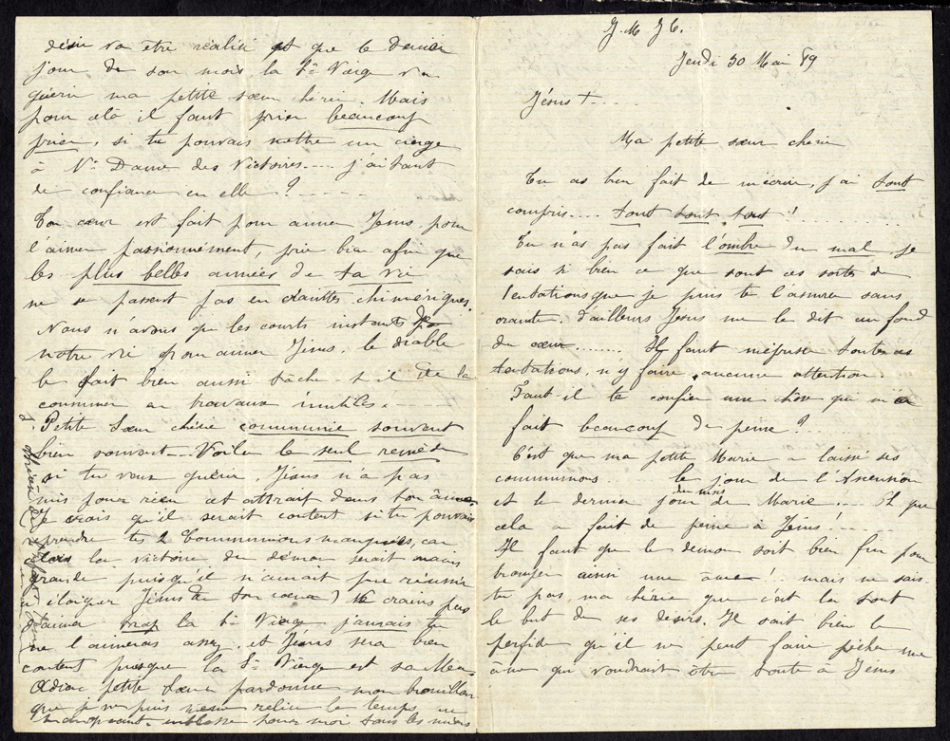 J. M. J. T.
Jeudi 30 Mai 89
Jésus +.....
Ma petite sœur chérie
Tu as bien fait de m'écrire, j'ai tout
compris.... tout tout, tout !.....
Tu n'as pas fait l'ombre du mal, je
sais si bien ce que sont ces sortes de
tentations que je puis te l'assurer sans
crainte, d'ailleurs Jésus me le dit au fond
du cœur....... Il faut mépriser toutes ces
tentations, n'y faire aucune attention.
Faut-il te confier une chose qui m'a
fait beaucoup de peine ?
C'est que ma petite Marie a laissé ses
communions. le jour de l'Ascension
et le dernier jour du mois de Marie.... Oh que
cela a fait de peine à Jésus !...
Il faut que le démon soit bien fin pour
tromper ainsi une âme !.. mais ne sais-
tu pas, ma chérie que c'est là tout
le but de ses désirs. Il sait bien le
perfide qu'il ne peut faire pécher une
âme qui voudrait être toute à Jésus
désir va être réalisé et que le dernier
jour de son mois la Ste Vierge va
guérir ma petite sœur chérie. Mais
pour cela il faut prier beaucoup
prier, si tu pouvais mettre un cierge
à N. Dame des Victoires.... j'ai tant
de confiance en elle !....
Ton cœur est fait pour aimer Jésus, pour
l'aimer passionnément, prie bien afin que
les plus belles années de ta vie
ne se passent pas en craintes chimériques.
Nous n'avons que les courts instants de
notre vie pour aimer Jésus, le diable
le sait bien aussi tâche-t-il de la
consumer en travaux inutiles.
Petite sœur chérie communie souvent
bien souvent.... Voilà le seul remède
si tu veux guérir, Jésus n'a pas
mis pour rien cet attrait dans ton âme
Je crois qu'il serait content si tu pouvais
reprendre tes 2 Communions manquées, car
alors la victoire du démon serait moins
grande puisqu'il n'aurait pu réussir
à éloigner Jésus de ton cœur) Ne crains pas
d'aimer trop la Ste Vierge, jamais tu
ne l'aimeras assez, et Jésus sera bien
content puisque la Ste Vierge est sa Mère
Adieu petite Sœur pardonne mon brouillon
que je ne puis même relire le temps me
manquant, embrasse pour moi tous les miens